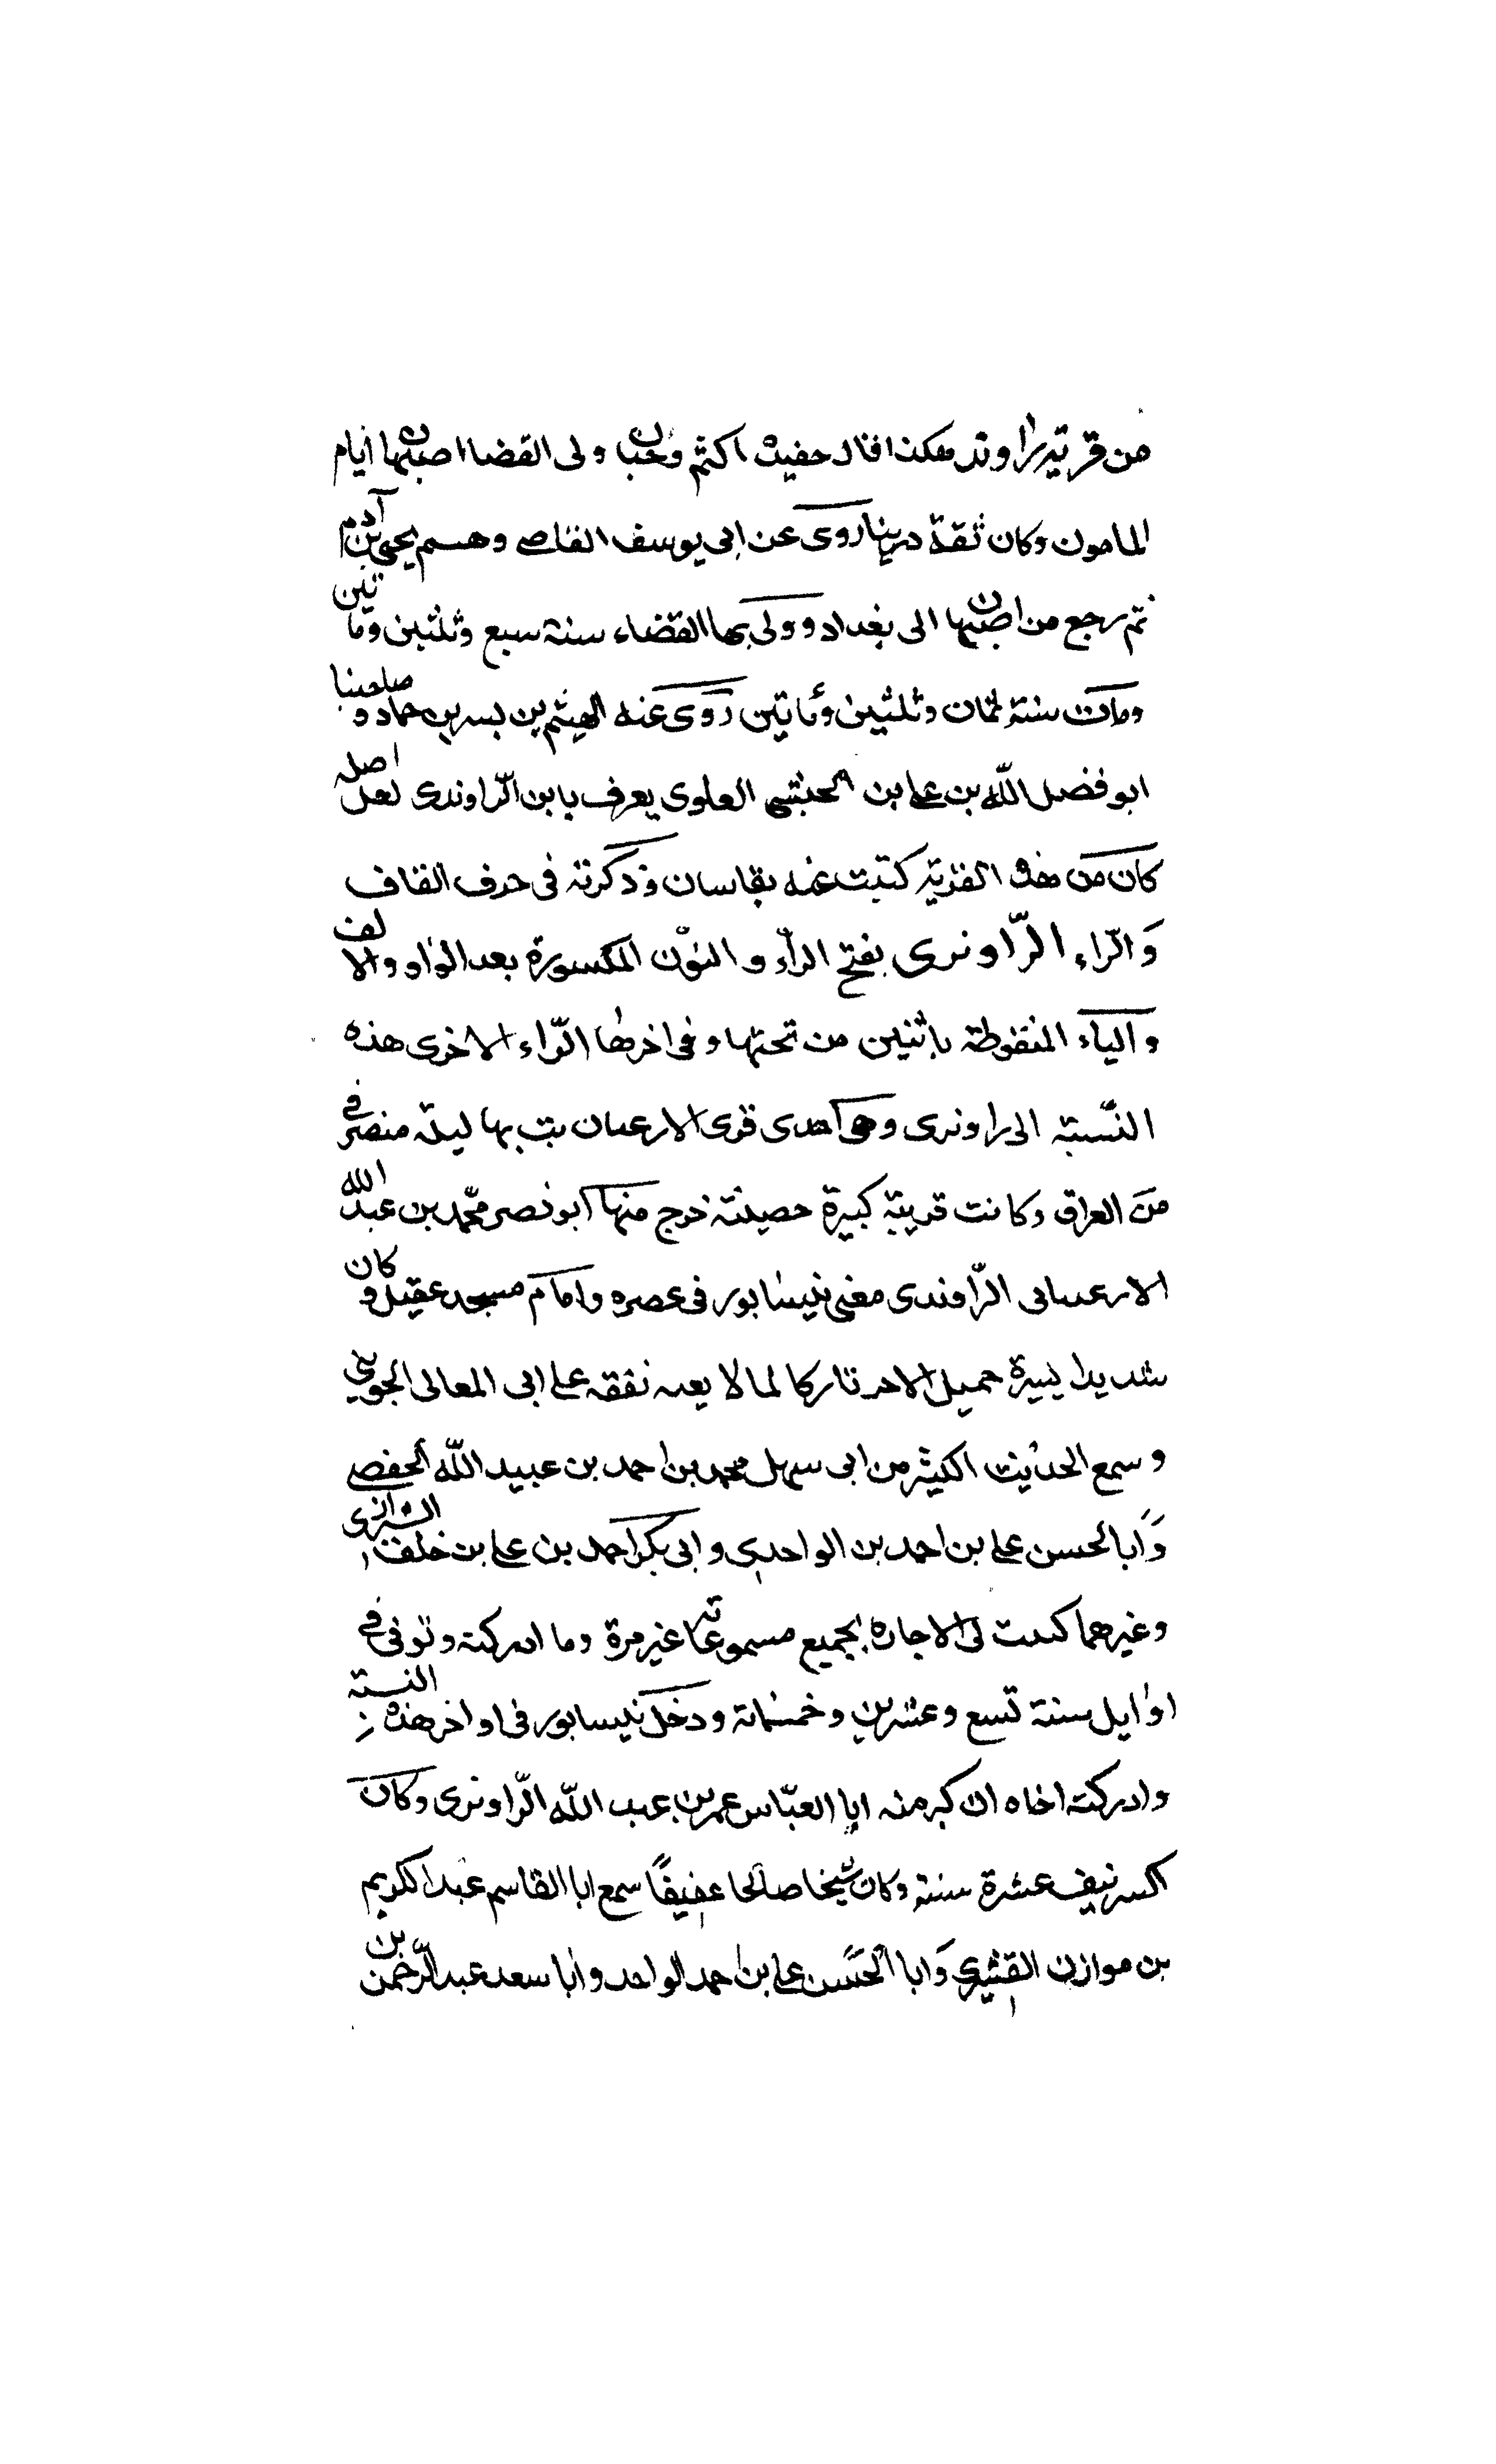 من قرية راوند هكذا قال حفيده اكثم وحيان ولى القضا اصبهان ايام
المامون وكان ثقة دينا روى عن ابى يوسف القاصى وهسم يحيى بن آدم
ثم رجع من اصبهان الى بغداد وولى بها القضاء سنة سبع وثلثين ومأتين
ومات سنة ثمان وثلثين ومأتين روى عنه الهيثم بن بسر بن حماد وصاحبنا
ابو فضل اللّه بن على بن العلوى يعرف بابن الرّاوندى لعل اصله
كان من هذه القرية كتبت عنه بقاسان وذكرته فى حرف القاف
وَالرّاء الرّاونرى بفتح الراء والنون المكسورة بعد الواو والالف
والياء المنقوطة باثنين من تحتها وفى اخرها الرّاء الاخرى هذه
النّسبة الى راونرى وهى احدى قرى الارعيان بت بها ليلة منصرفى
من العراق وكانت قرية كبيرة حصينة خرج منها ابو نصر محمّد بن عبد الله
الارعىانى الرّاوندى مفتى نيسابور فى عصره وامام مسجد عقيل وكان
شديدا يسيرة جميل الامر تاركا لما لا يعىه تفقه على ابى المعالى الجوينى
وسمع الحديث الكثير من ابى سهل محمد بن احمد بن عبيد اللّه الحفصى
وَابا الحسن على بن احمد بن الواحدى وابى بكر احمد بن على بن خلف الشيرازى
وغيرهما كتبت لى الاجازة بجميع مسموعاته غير مرة وما ادركته وتوفى فى
اوايل سنة تسع وعشرين وخمسماية ودخل نيسابور فى اواخر هذه السنة
وادركت اخاه اكبر منه ابا العبّاس عمر بن عبد اللّه الرّاونرى وكان
اكبر نيف عشرة سنة وكان شيخا صالحا عفيفًا سمع ابا القاسم عبد الكريم
بن موازن القشيرى وَابا الحَسن على بن احمد الواحد وابا سعد عبد الرّحمن بن